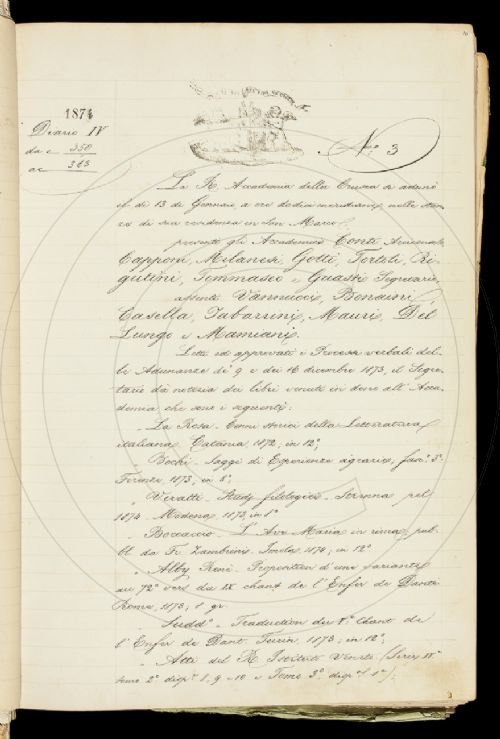 1874
Diario IV
da c 350
a c 363
N.º 3
La R. Accademia della Crusca si adunò
il dì 13 di Gennaio, a ore dodici meridiane, nelle stan
ze di sua residenza in San Marco.
presenti gli Accademici Conti
Capponi, Milanesi, Gotti, Tortoli, Ri
gutini, Tommaseo e Guasti Segretario,
assenti Vannucci, Bonaini,
Casella, Tabarrini, Mauri, Del
Lungo e Mamiani.
Letti ed approvati i Processi verbali del
le Adunanze de' 9 e dei 16 dicembre 1873, il Segre
tario dà notizia dei libri venuti in dono all'Acca
demia che sono i seguenti:
La Rosa. Cenni storici della Letteratura
italiana. Catania 1872; in 12º;
Bechi. Saggi di Esperienze agrarie, fasc. 3º
Firenze 1873, in 8º;
Veratti. Studj filologici. Strenna pel
1874. Modena 1873, in 8º
Boccaccio. L'Ave Maria in rima, pub
bl. da Fr. Zambrini. Imola 1874; in 12º
Alby René. Proposition d'une variante
au 72º vers du IX chant de l'Enfer de Dante
Rome, 1873; 8º gr.
Sudd.º Traduction du 1º Chant de
l'Enfer de Dant. Turin, 1873; in 12º;
Atti del R. Istituto Veneto (Serie IV
tomo 2º disp.e 8, 9 - 10 e Tomo 3º disp.e 1ª);